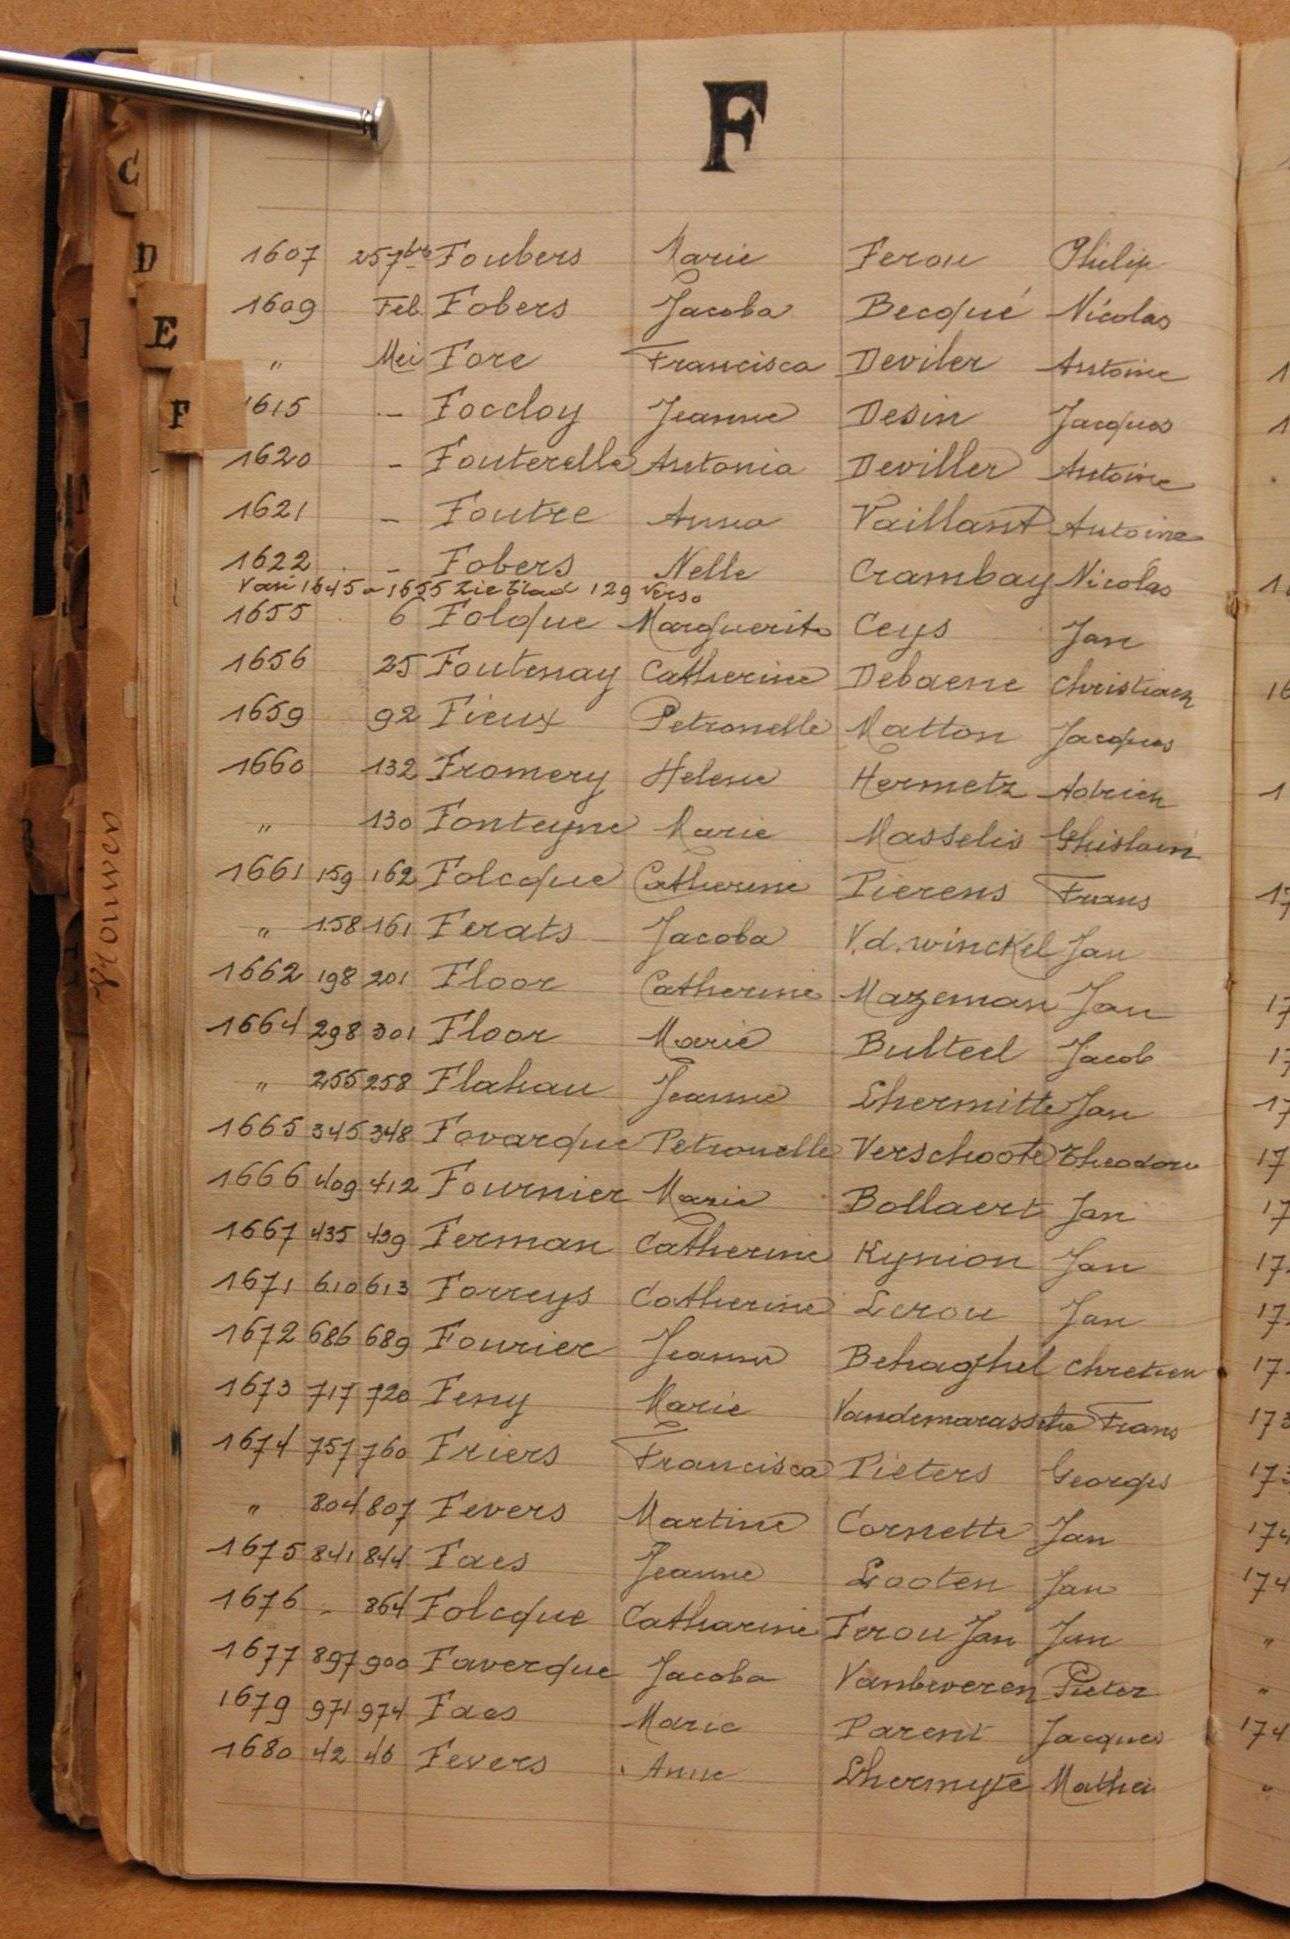 F
C
D
E
F
Vrouwen
1607 25 7bre Foubers Marie Ferou Philip
1609 Feb Fobers Jacoba Becqué Nicolas
" Mei Fore Francisca Deviler Antoine
1615 - Foccloy Jeanne Desin Jacques
1620 - Fouterelle Antonia Deviller Antoine
1621 - Foutre Anna Vaillant Antoine
1622 - Fobers Nelle Crambay Nicolas
Van 1645 a 1655 Zie blad 129 Verso
1655 6 Folque Marguerite Ceys Jan
1656 25 Foutenay Catherine Debaene Christiaen
1659 92 Fieux Petronelle Matton Jacques
1660 132 Fromery Helene Hermetz Adrien
" 130 Fonteyne Marie Masselis Ghislain
1661 159 162 Folcque Catherine Pierens Frans
" 158 161 Ferats Jacoba V.d.winckel Jan
1662 198 201 Floor Catherine Mazeman Jan
1664 298 301 Floor Marie Bulteel Jacob
" 255 258 Flahau Jeanne Lhermitte Jan
1665 345 348 Fovarque Petronelle Verschoote Theodore
1666 409 412 Fournier Marie Bollaert Jan
1667 435 439 Ferman Catherine Kymon Jan
1671 610 613 Forreys Catherine Lerou Jan
1672 686 689 Fourier Jeanne Behaghel Chretien
1673 717 720 Feny Marie Vandemarassche Frans
1674 757 760 Friers Francisca Pieters Georges
" 804 807 Fevers Martine Cornette Jan
1675 841 844 Faes Jeanne Looten Jan
1676 - 864 Folcque Catharine Ferou Jan Jan
1677 897 900 Faverque Jacoba Vanbeveren Pieter
1679 971 974 Faes Marie Parent Jacques
1680 42 46 Fevers Anne Lhermyte Mathei